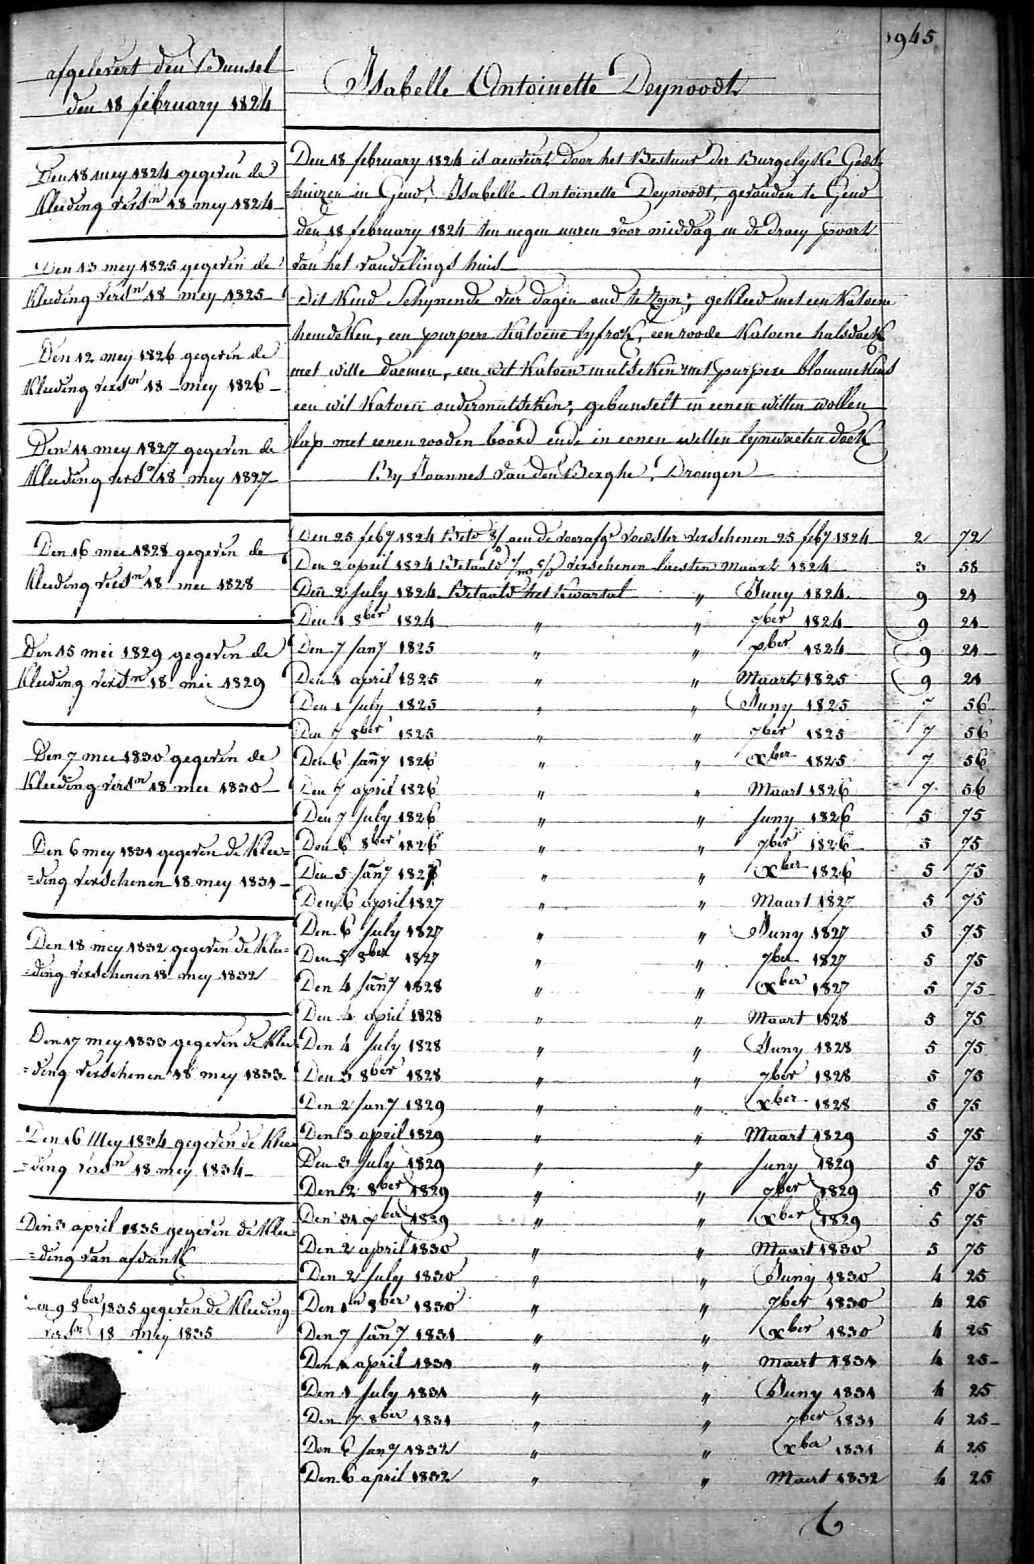 1945
afgelevert den Bunsel
den 18 february 1824
Isabelle Antoinette Deynoodt
Den 18 mey 1824 gegeven de
Kleeding versn 18 mey 1824
Den 13 mey 1825 gegeven de
Kleeding versn 18 mey 1825
Den 12 mey 1826 gegeven de
Kleeding versn 18 mey 1826
Den 11 mey 1827 gegeven de
Kleeding versn 18 mey 1827
Den 16 mei 1828 gegeven de
Kleeding versn 18 mei 1828
Den 15 mei 1829 gegeven de
Kleeding versn 18 mei 1829
Den 7 mei 1830 gegeven de
Kleeding versn 18 mei 1830
Den 6 mey 1831 gegeven de Klee=
=ding verschenen 18 mey 1831
Den 18 mey 1832 gegeven de Klee=
=ding verschenen 18 mey 1832
Den 17 mey 1833 gegeven de Klee=
=ding verschenen 18 mey 1833
Den 16 Mey 1834 gegeven de Klee=
=ding versn 18 mey 1834
Den 3 april 1835 gegeven de Klee=
=ding van afdank
Den 9 8ber 1835 gegeven de Kleeding
versn 18 mey 1835
Den 18 february 1824 is aenveirt door het Bestuur der Burgelyke Gods=
=huizen in Gend, Isabelle Antoinette Deynoodt, gevonden te Gend
den 18 february 1824 ten negen uuren voor middag in de Draey poort
van het vondelings huis
dit Kind Schynende vier dagen oud te Zyn; gekleed met een Katoene
hemdeken, een purpere Katoene lyfrok, een roode Katoene halsdoek
met witte daemen, een wit Katoen mutseken met purpere blommekens
een wit Katoen ondermutseken; gebunselt in eenen witten wollen
lap met eenen rooden boord ende in eenen witten lynwaeten doek
By Joannes van den Berghe, Drongen
Den 25 feb7 1824 Bete aen de voorafge voedster verschenen 25 feb7 1824 2 72
Den 2 april 1824 Betaald verschenen laesten Maart 1824 3 58
Den 2 July 1824 Betaald het Kwartal " Juny 1824 9 21
Den 1 8ber 1824 " " 7ber 1824 9 21
Den 7 Jany 1825 " " xber 1824 9 21
Den 1 april 1825 " " Maart 1825 9 21
Den 1 July 1825 " " Juny 1825 7 56
Den 7 8ber 1825 " " 7ber 1825 7 56
Den 6 Jany 1826 " " xber 1825 7 56
Den 7 april 1826 " " Maart 1826 7 56
Den 7 July 1826 " " Juny 1826 5 75
Den 6 8ber 1826 " " 7ber 1826 5 75
Den 5 Jany 1827 " " xber 1826 5 75
Den 6 april 1827 " " Maart 1827 5 75
Den 6 July 1827 " " Juny 1827 5 75
Den 5 8ber 1827 " " 7ber 1827 5 75
Den 4 Jany 1828 " " xber 1827 5 75
Den 4 april 1828 " " Maart 1828 5 75
Den 4 July 1828 " " Juny 1828 5 75
Den 3 8ber 1828 " " 7ber 1828 5 75
Den 2 Jany 1829 " " xber 1828 5 75
Den 3 april 1829 " " Maart 1829 5 75
Den 3 July 1829 " " Juny 1829 5 75
Den 2 8ber 1829 " " 7ber 1829 5 75
Den 31 xber 1829 " " xber 1829 5 75
Den 2 april 1830 " " Maart 1830 5 75
Den 2 July 1830 " " Juny 1830 4 25
Den 1n 8ber 1830 " " 7ber 1830 4 25
Den 7 Jany 1831 " " xber 1830 4 25
Den 1 april 1831 " " Maert 1831 4 25
Den 1 July 1831 " " Juny 1831 4 25
Den 7 8ber 1831 " " 7ber 1831 4 25
Den 6 Jany 1832 " " xber 1831 4 25
Den 6 april 1832 " " Maert 1832 4 25